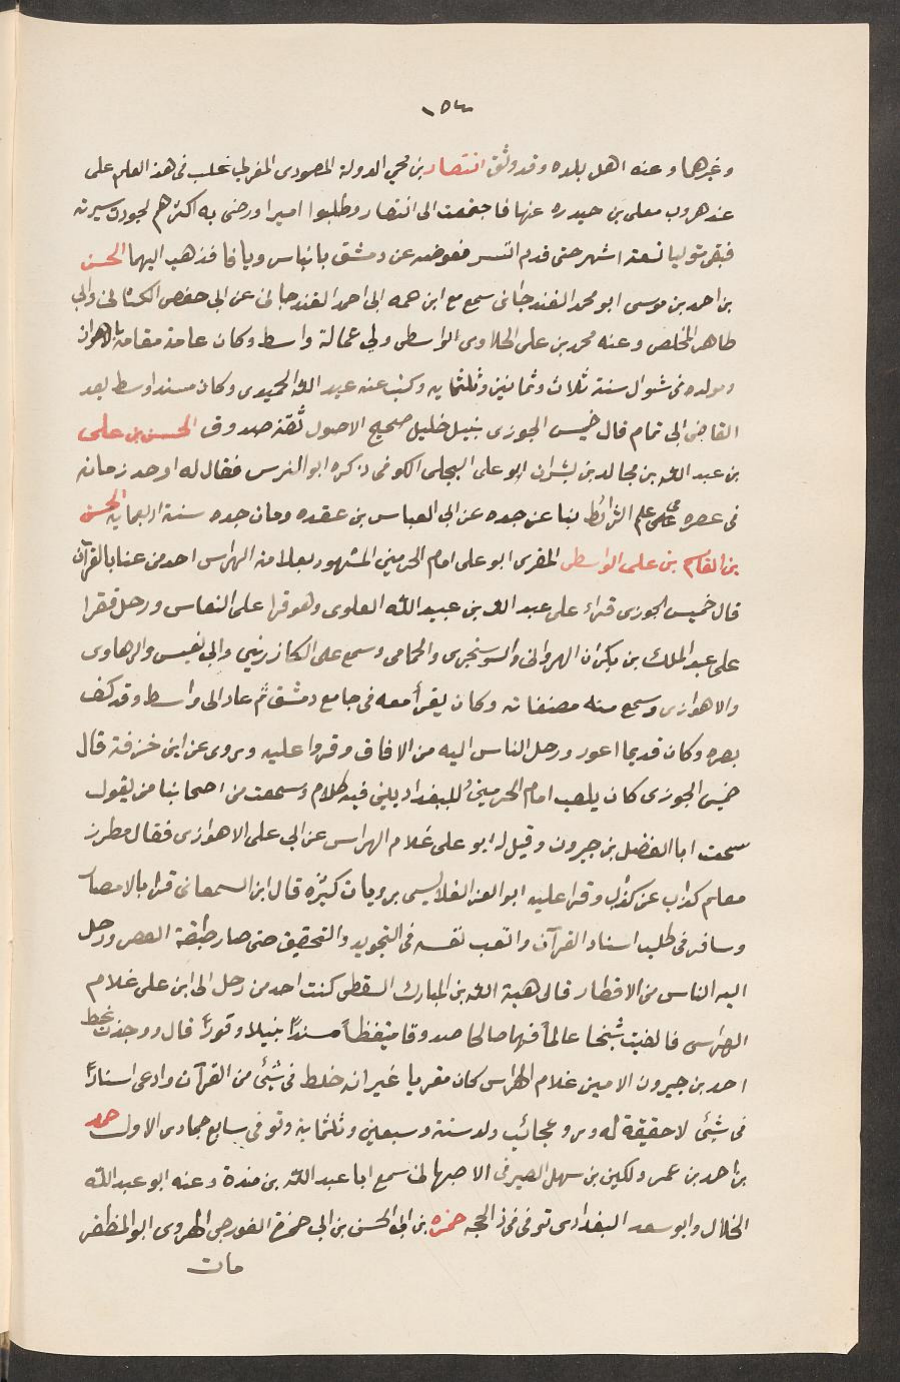 ١٥٤
وغيرها وعنه اهل بلده وقد وثق انتصار بن محي الدولة المصمودى المغربي غلب فى هذا العلم على
عند هروب معلى بن حيدره عنها فاجتمعت الى انتصار وطلبوا اميرا ورضى به اكثرهم لجودت سيرته
فبقى متوليا تسعة اشهر حتى قدم اتسر فعوضه عن دمشق بانياس ويافا فذهب اليهما الحسن
بن احمد بن موسى ابو محمد الغندجانى سمع مع ابن عمه ابى احمد الغندجانى عن ابى حفص الكتانى وابى
طاهر المخلص وعنه محمد بن على الجلاوى الواسطى ولى عمالة واسط وكان عامة مقامه بالاهواز
ومولده فى شوال سنة ثلاث وثمانين وثلثمايه وكتب عنه عبد الله الحميدى وكان مسند اوسط بعد
القاضى ابى تمام قال خميس الجوزى نبيل خليل صحيح الاصول ثقة صدوق الحسن بن على
بن عبد الله بن مجالد بن بشران ابو على البجلى الكوفى ذكره ابو النرس فقال له اوحد زمانه
فى عصره فى علم الشرائط نبا عن جده عن ابى العباس بن عقده ومات جده سنة اربعمايه الحسن
بن القاسم بن على الواسطى المقرى ابو على امام الحرمين المشهور بغلامه الهراس احد من عنا بالقرآن
قال خميس الجوزى قراء على عبد الله بن عبيد الله العلوى وهو قرا على النقاس ورحل فقرا
على عبد الملك بن بكران النهروانى والسوسنجردى والحمامى وسمع على الكازرينى وابى نفيس والرهاوى
والاهوازى وسمع منه مصنفاته وكان يقرأ معه فى جامع دمشق ثم عاد الى واسط وقد كف
بصره وكان قديما اعور ورحل الناس اليه من الافاق وقروا عليه وىروى عن ابن خزفة قال
خميس الجوزى كان يلعب امام الحرمين وللبغداديين فيه كلام وسمعت من اصحابنا من يقول
سمعت ابا الفضل بن خيرون وقيل له ابو على غلام الهراس عن ابى على الاهوازى فقال مطرز
معلم كذاب عن كذاب وقرا عليه ابو العز القلانسى بروايات كثيره قال ابن السمعانى قرا بالامصار
وسافر فى طلب اسناد القرآن واتعب نفسه فى التجويد والتحقيق حتى صار طبقة العصر ورحل
اليه الناس من الاقطار قال هبة الله بن المبارك السقطى كنت احد من رحل الى ابن على غلام
الهراس فالفيت شيخا عالما فهما صالحا صدوقا متيقظاً مسنداً نبيلا وقوراً قال ووجدت بخط
احمد بن خيرون الامين غلام الهراس كان مقريا غير انه خلط فى شئ من القرآن وادعى اسناداً
فى شئ لا حقيقة له وروى عجائب ولد سنة وسبعين وثلثمايه وتوفى سابع جمادى الاول حمد
بن احمد بن عمر ولكين بن سهل الصيرفى الاصبهانى سمع ابا عبد الله بن مندة وعنه ابو عبد الله
الخلال وابو سعد البغدادى توفى فى ذ الحجه حمزه بن ابى الحسن بن ابى حمزة الفورجى الهروى ابو المظفر
مات